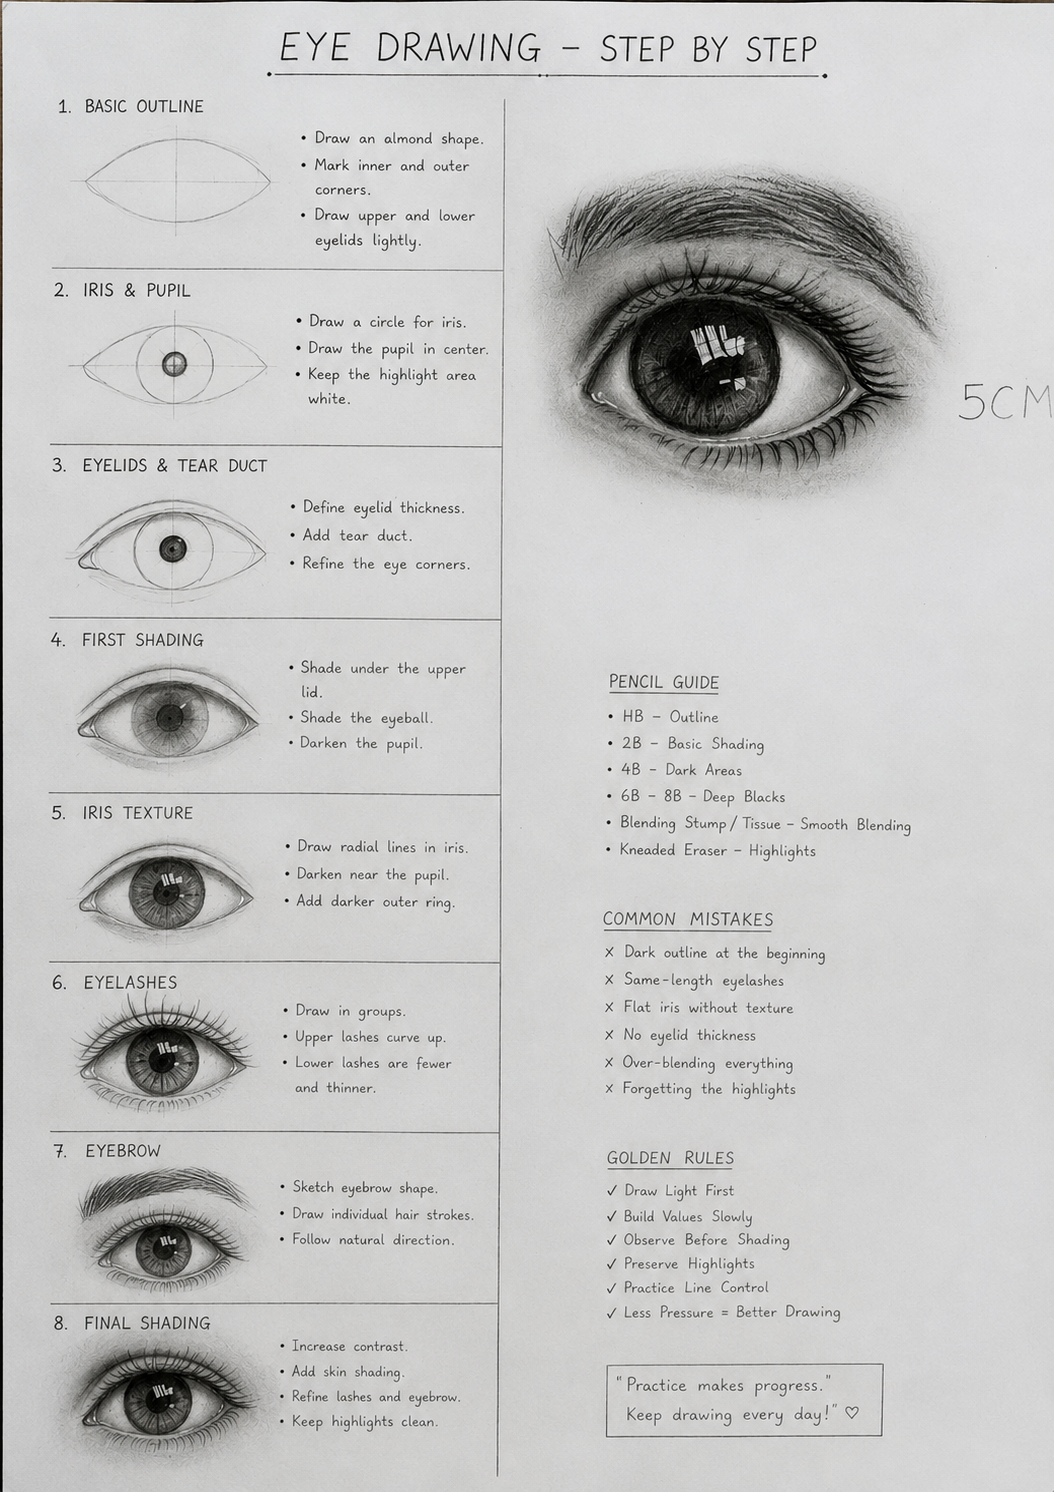 EYE DRAWING – STEP BY STEP
1. BASIC OUTLINE
• Draw an almond shape.
• Mark inner and outer
corners.
• Draw upper and lower
eyelids lightly.
2. IRIS & PUPIL
• Draw a circle for iris.
• Draw the pupil in center.
• Keep the highlight area
white.
3. EYELIDS & TEAR DUCT
• Define eyelid thickness.
• Add tear duct.
• Refine the eye corners.
4. FIRST SHADING
• Shade under the upper
lid.
• Shade the eyeball.
• Darken the pupil.
5. IRIS TEXTURE
• Draw radial lines in iris.
• Darken near the pupil.
• Add darker outer ring.
6. EYELASHES
• Draw in groups.
• Upper lashes curve up.
• Lower lashes are fewer
and thinner.
7. EYEBROW
• Sketch eyebrow shape.
• Draw individual hair strokes.
• Follow natural direction.
8. FINAL SHADING
• Increase contrast.
• Add skin shading.
• Refine lashes and eyebrow.
• Keep highlights clean.
5CM
PENCIL GUIDE
• HB – Outline
• 2B – Basic Shading
• 4B – Dark Areas
• 6B – 8B – Deep Blacks
• Blending Stump / Tissue – Smooth Blending
• Kneaded Eraser – Highlights
COMMON MISTAKES
✗ Dark outline at the beginning
✗ Same-length eyelashes
✗ Flat iris without texture
✗ No eyelid thickness
✗ Over-blending everything
✗ Forgetting the highlights
GOLDEN RULES
✓ Draw Light First
✓ Build Values Slowly
✓ Observe Before Shading
✓ Preserve Highlights
✓ Practice Line Control
✓ Less Pressure = Better Drawing
"Practice makes progress."
Keep drawing every day!" ♡